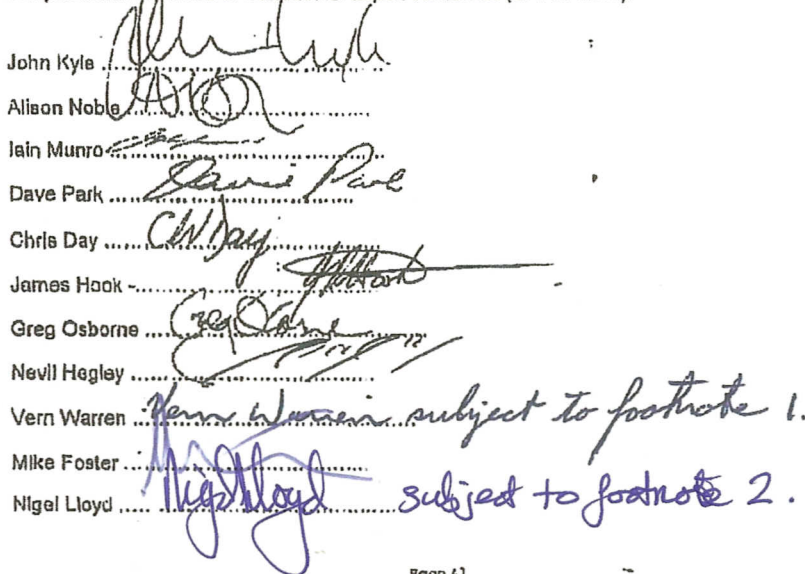 John Kyle ........
Alison Noble ........
Iain Munro ........
Dave Park ........ David Park
Chris Day ........ CW Day
James Hook -........ Hook
Greg Osborne ........ Greg Osborne
Nevil Hegley ........
Vern Warren ........ Vern Warren subject to footnote 1.
Mike Foster ........
Nigel Lloyd ........ Nigel Lloyd subject to footnote 2.